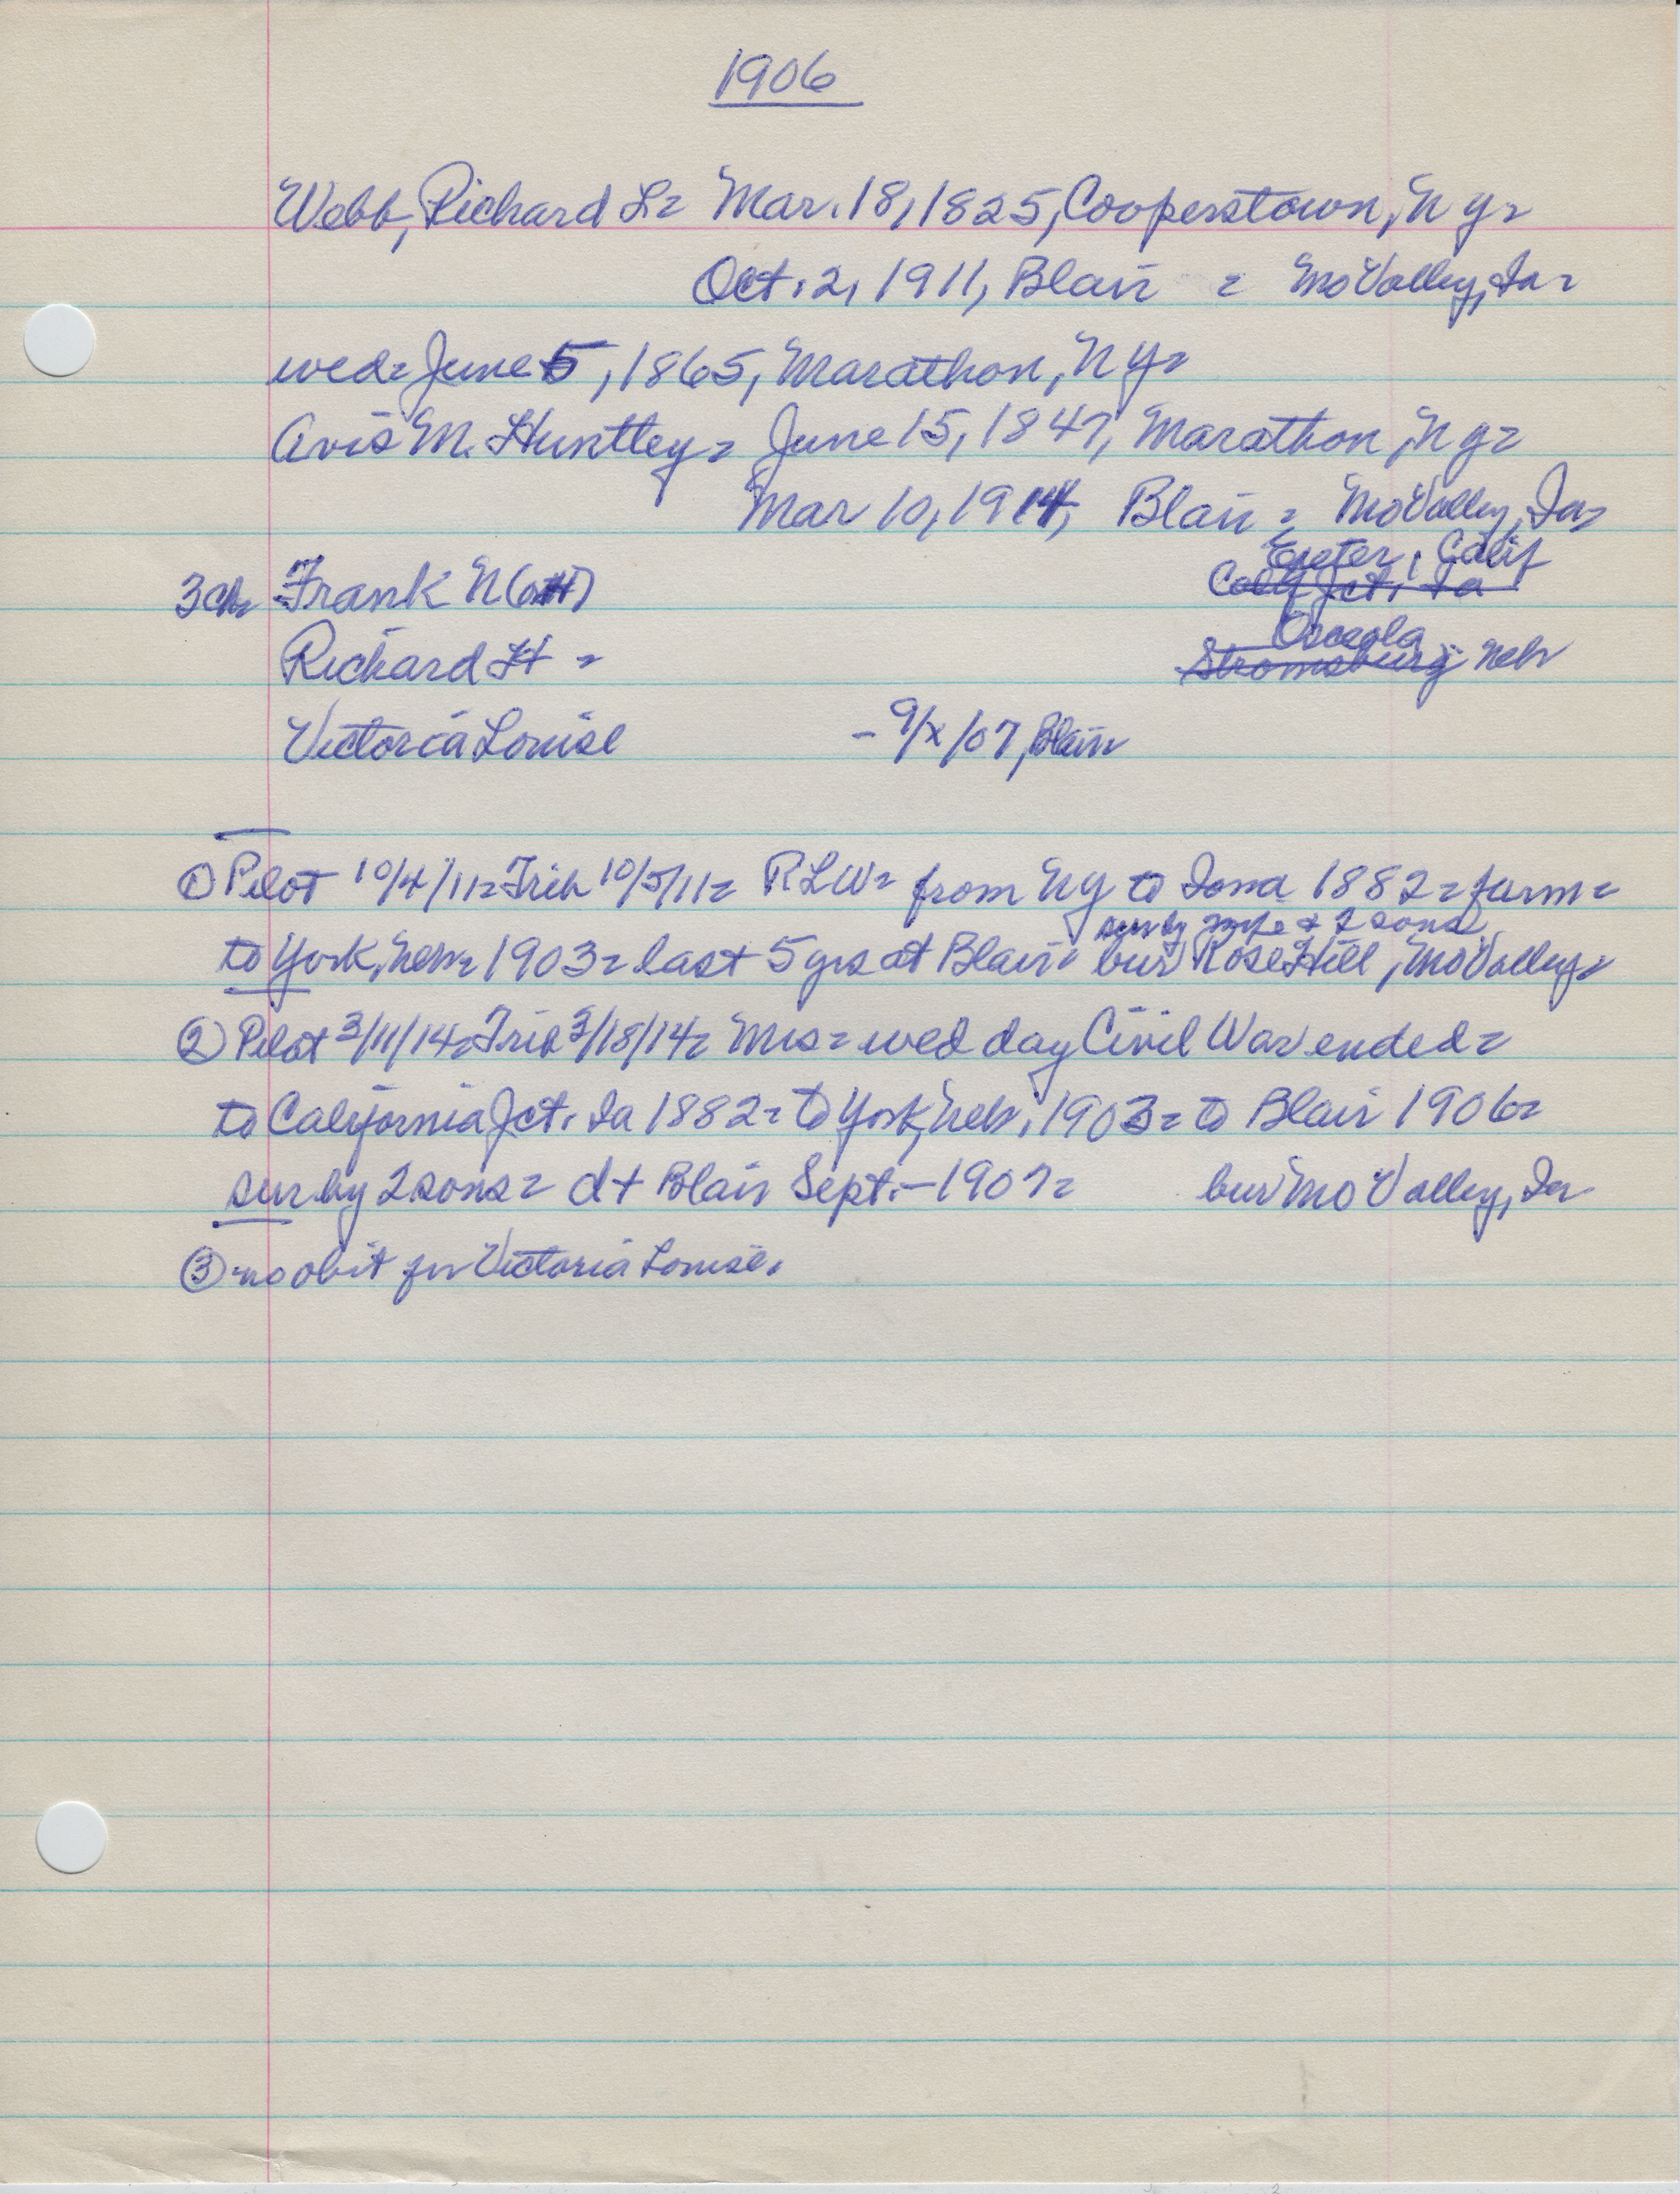 1906
Webb, Richard L = Mar. 18, 1825, Cooperstown, NY =
Oct. 2, 1911, Blair = Mo Valley, Ia =
wed = June 5, 1865, Marathon, NY =
Avis M. Huntley = June 15, 1847, Marathon, NY =
Mar 10, 1914, Blair = Mo Valley, Ia =
Exeter, Calif
3 ch = Frank N (or H) Calif Jct. Ia
Osceola
Richard H = Stromsburg Neb
Victoria Louise - 9/x/07, Blair
① Pilot 10/4/11 = Trib 10/5/11 = RLW = from NY to Iowa 1882 = farm =
surv by wife & 2 sons
to York, Neb = 1903 = last 5 yrs at Blair = bur Rose Hill, Mo Valley =
② Pilot 3/11/14 = Trib 3/18/14 = Mrs = wed day Civil War ended =
to California Jct. Ia 1882 = to York, Neb, 1903 = to Blair 1906 =
sur by 2 sons = d + Blair Sept. - 1907 = bur Mo Valley, Ia
③ no obit for Victoria Louise.